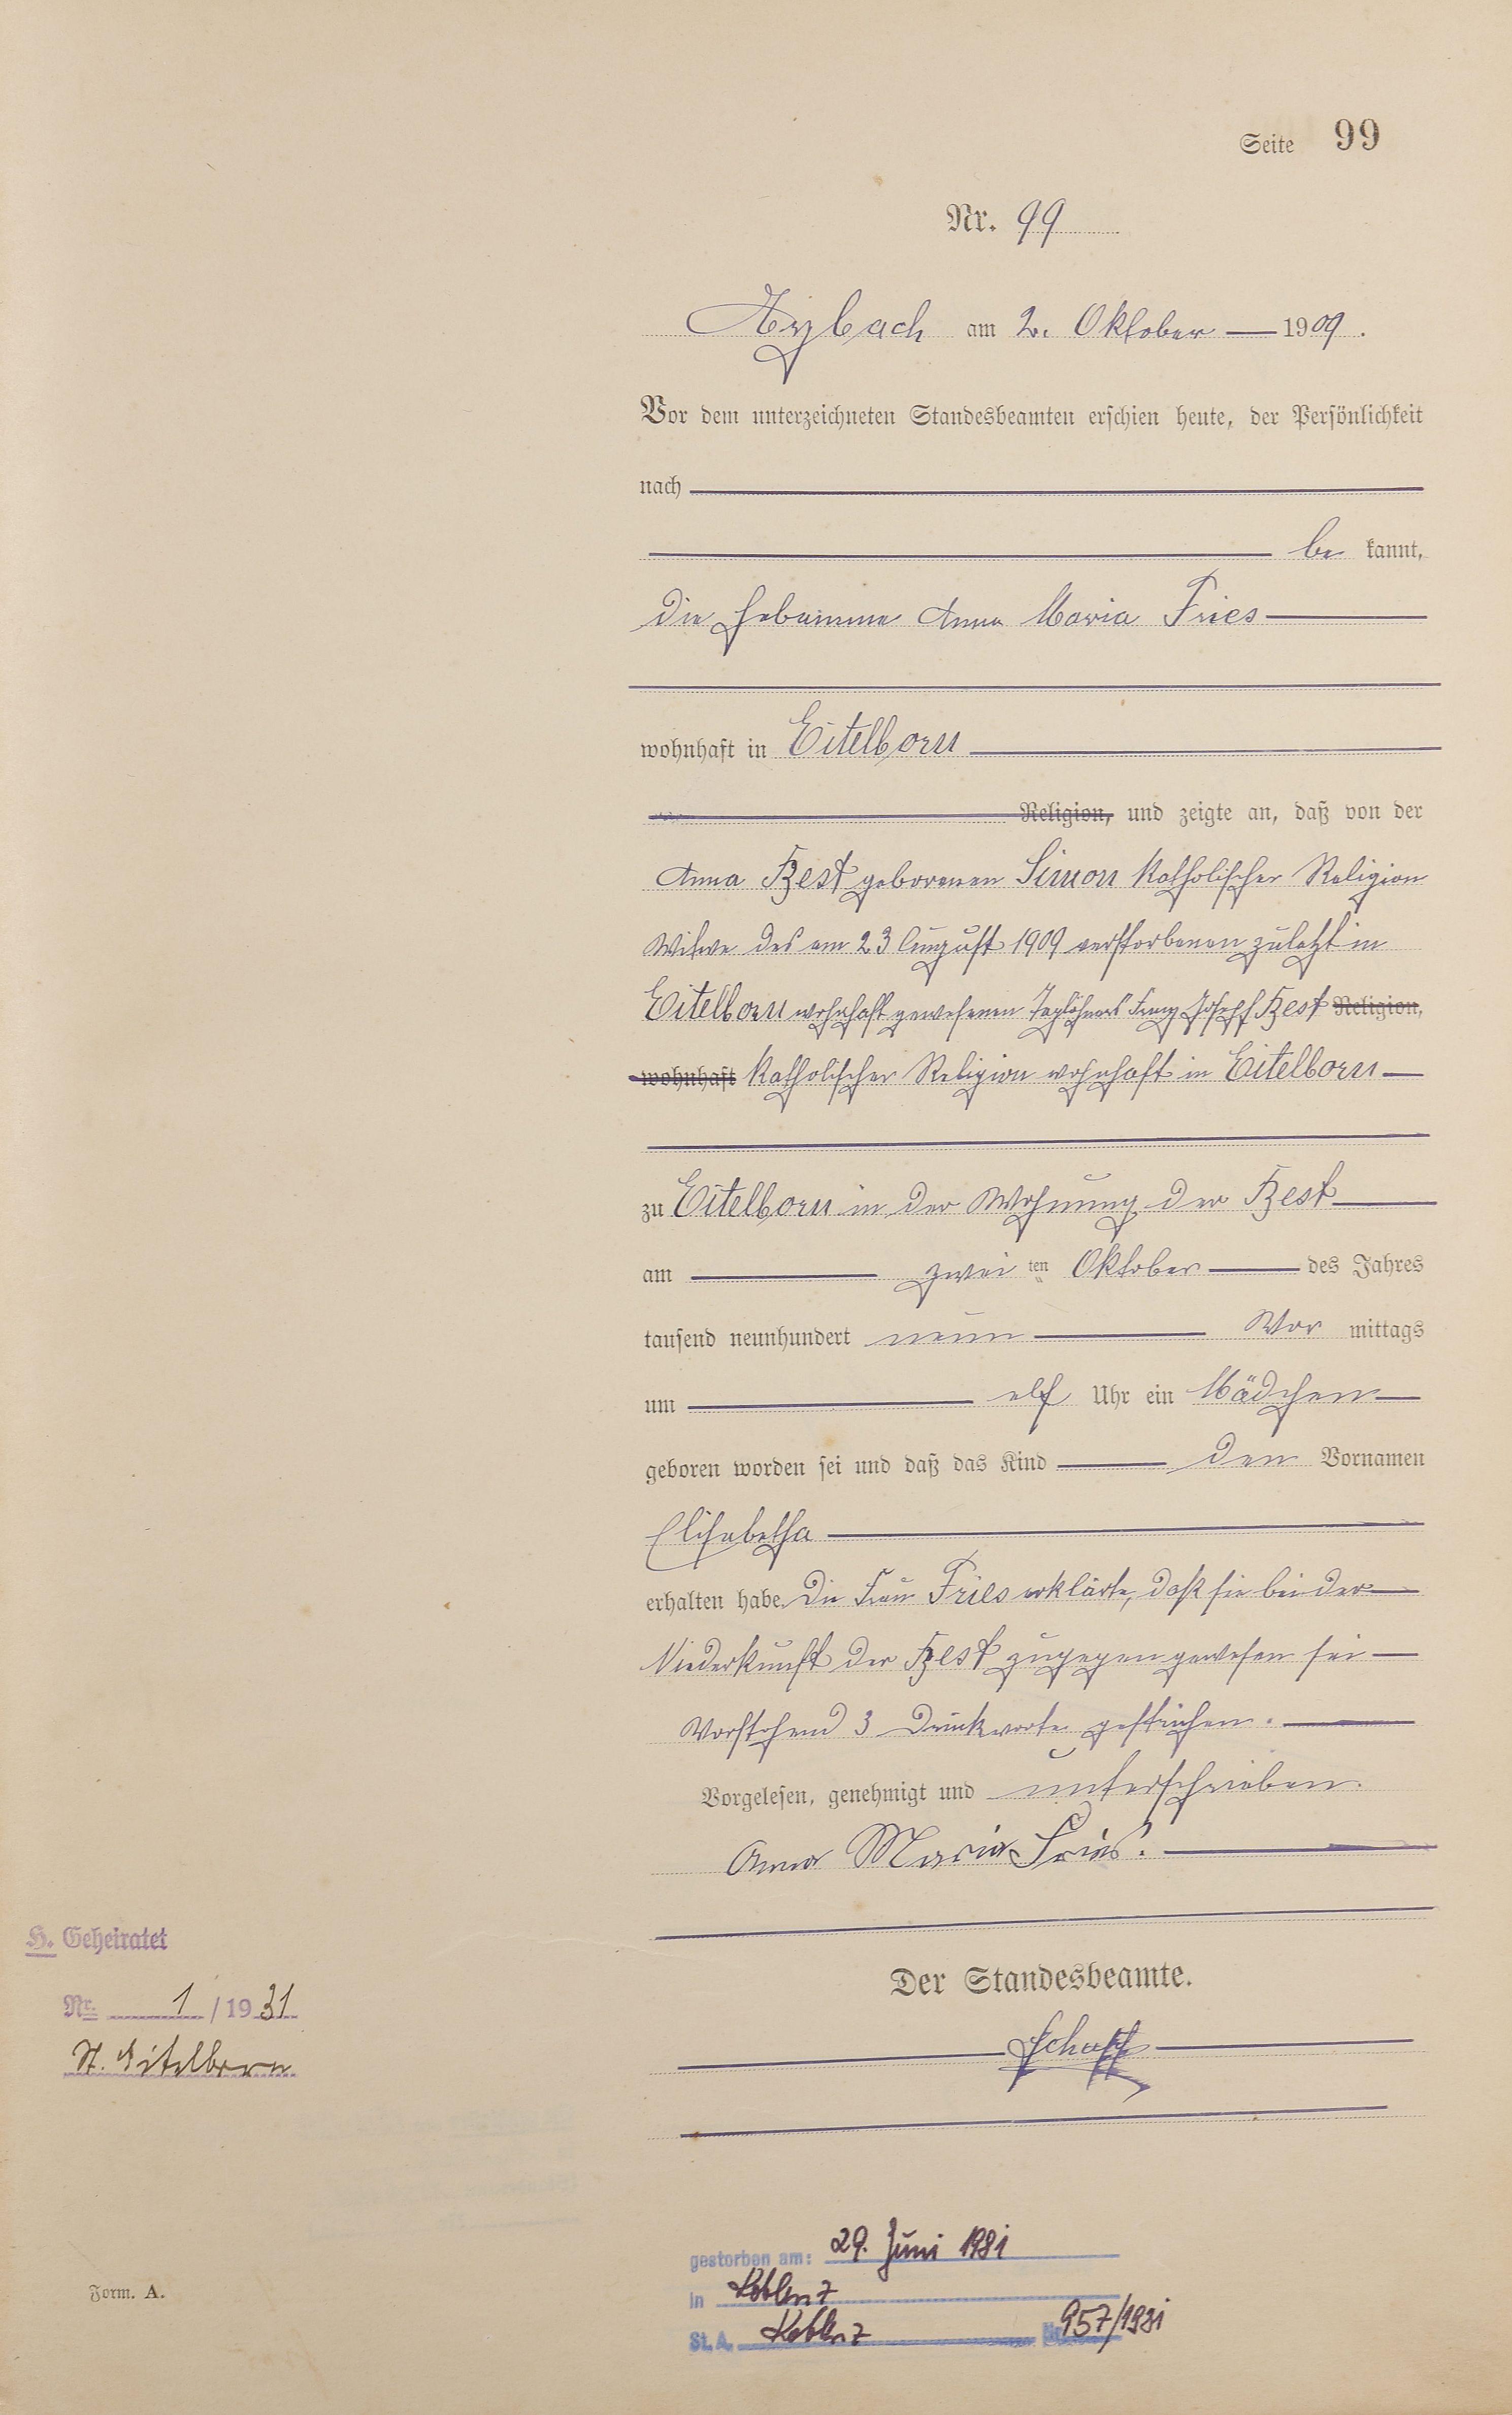 Seite 99
Nr. 99
Arzbach am 2. Oktober 1909.
Vor dem unterzeichneten Standesbeamten erschien heute, der Persönlichkeit
nach
be kannt,
die Hebamme Anna Maria Fries
wohnhaft in Eitelborn
Religion, und zeigte an, daß von der
Anna Best geborenen Simon katholischer Religion
Witwe des am 23 August 1909 verstorbenen zuletzt in
Eitelborn wohnhaft gewesenen Taglöhners Franz Joseph Best Religion,
wohnhaft katholischer Religion wohnhaft in Eitelborn
zu Eitelborn in der Wohnung der Best
am zwei ten Oktober des Jahres
tausend neunhundert neun Vor mittags
um elf Uhr ein Mädchen
geboren worden sei und daß das Kind den Vornamen
Elisabetha
erhalten habe. Die Frau Fries erklärte, daß sie bei der
Niederkunft der Best zugegen gewesen sei
Vorstehend 3 Druckworte gestrichen.
Vorgelesen, genehmigt und unterschrieben.
Anna Maria Fries.
Der Standesbeamte.
H. Geheiratet
Nr. 1 / 1931
St. Eitelborn
Form. A.
gestorben am: 29. Juni 1981
in Koblenz
St. A. Koblenz Nr. 957/1981